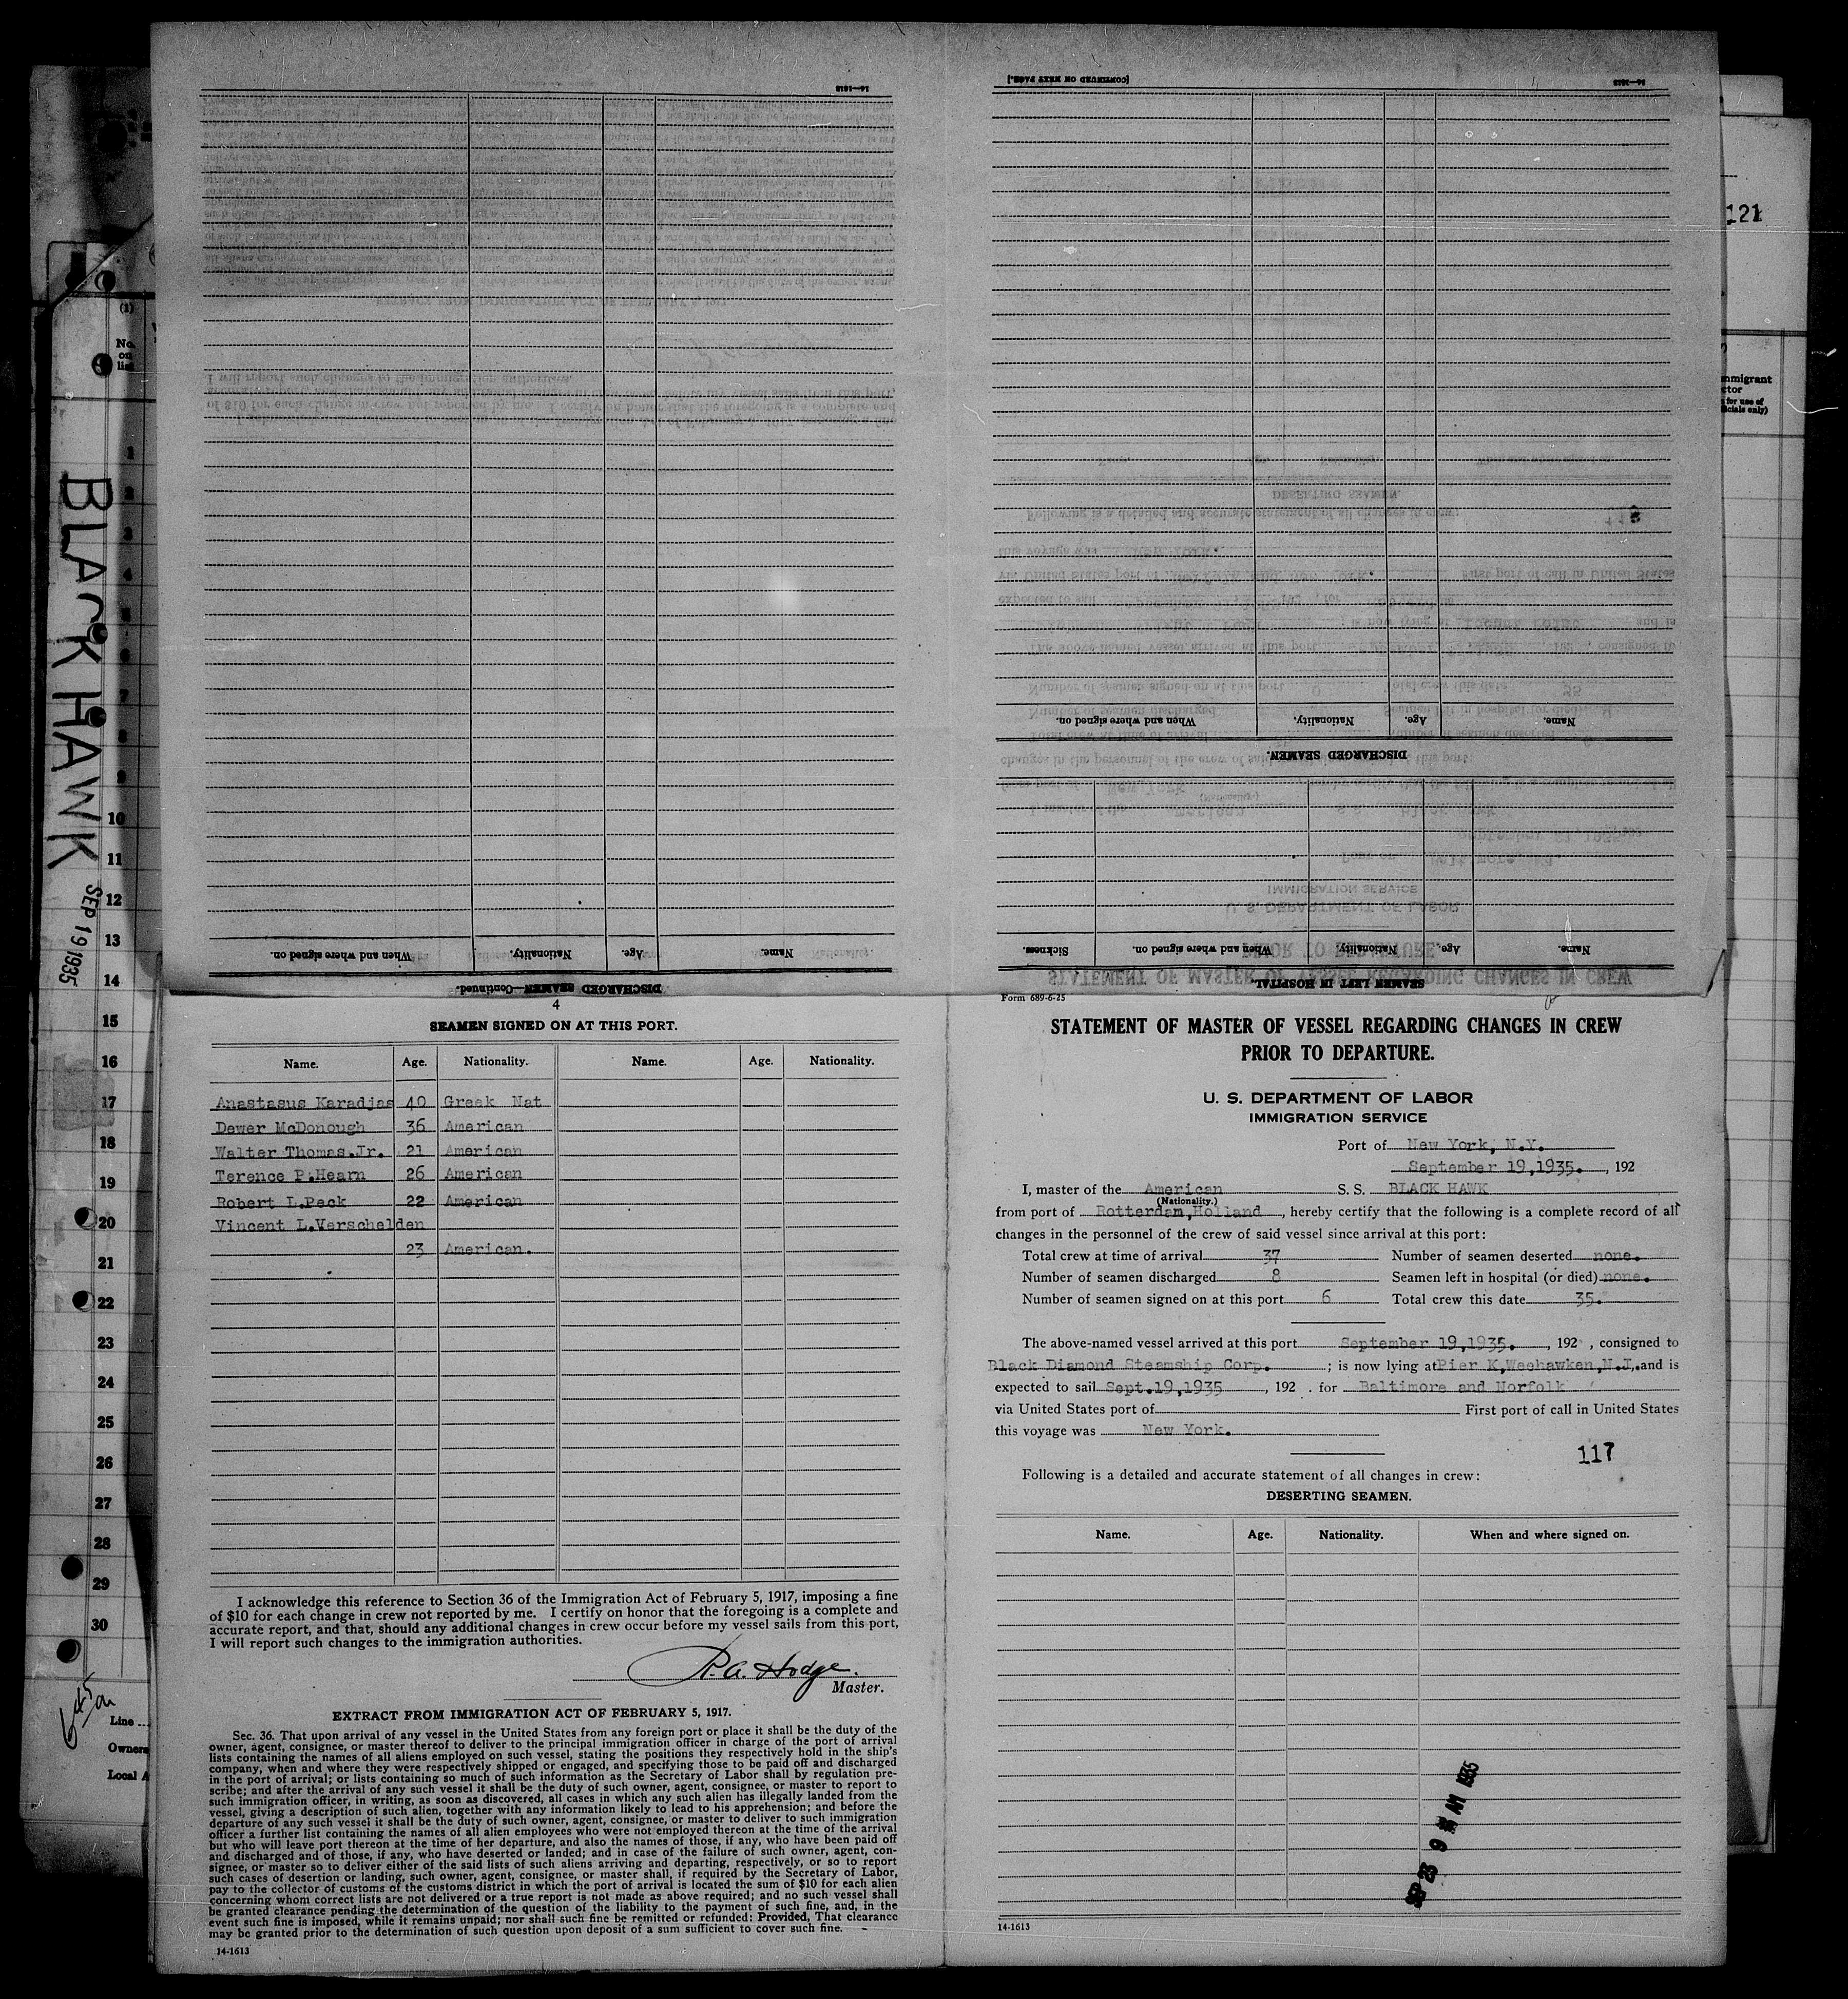 BLACK HAWK
SEP 19 1935
121
[CONTINUED ON NEXT PAGE.]
14—1613
DISCHARGED SEAMEN.
Name. Age. Nationality. When and where signed on.
SEAMEN LEFT IN HOSPITAL.
Name. Age. Nationality. When and where signed on. Sickness.
DISCHARGED SEAMEN—Continued.
Name. Age. Nationality. When and where signed on.
4
SEAMEN SIGNED ON AT THIS PORT.
Name. Age. Nationality. Name. Age. Nationality.
Anastasus Karadjas 40 Greek Nat
Dewer McDonough 36 American
Walter Thomas.Jr. 21 American
Terence P.Hearn 26 American
Robert L.Peck 22 American
Vincent L.Verschelden
23 American.
I acknowledge this reference to Section 36 of the Immigration Act of February 5, 1917, imposing a fine
of $10 for each change in crew not reported by me. I certify on honor that the foregoing is a complete and
accurate report, and that, should any additional changes in crew occur before my vessel sails from this port,
I will report such changes to the immigration authorities.
R.A. Hodge.
Master.
EXTRACT FROM IMMIGRATION ACT OF FEBRUARY 5, 1917.
Sec. 36. That upon arrival of any vessel in the United States from any foreign port or place it shall be the duty of the
owner, agent, consignee, or master thereof to deliver to the principal immigration officer in charge of the port of arrival
lists containing the names of all aliens employed on such vessel, stating the positions they respectively hold in the ship's
company, when and where they were respectively shipped or engaged, and specifying those to be paid off and discharged
in the port of arrival; or lists containing so much of such information as the Secretary of Labor shall by regulation pre-
scribe; and after the arrival of any such vessel it shall be the duty of such owner, agent, consignee, or master to report to
such immigration officer, in writing, as soon as discovered, all cases in which any such alien has illegally landed from the
vessel, giving a description of such alien, together with any information likely to lead to his apprehension; and before the
departure of any such vessel it shall be the duty of such owner, agent, consignee, or master to deliver to such immigration
officer a further list containing the names of all alien employees who were not employed thereon at the time of the arrival
but who will leave port thereon at the time of her departure, and also the names of those, if any, who have been paid off
and discharged and of those, if any, who have deserted or landed; and in case of the failure of such owner, agent, con-
signee, or master so to deliver either of the said lists of such aliens arriving and departing, respectively, or so to report
such cases of desertion or landing, such owner, agent, consignee, or master shall, if required by the Secretary of Labor,
pay to the collector of customs of the customs district in which the port of arrival is located the sum of $10 for each alien
concerning whom correct lists are not delivered or a true report is not made as above required; and no such vessel shall
be granted clearance pending the determination of the question of the liability to the payment of such fine, and, in the
event such fine is imposed, while it remains unpaid; nor shall such fine be remitted or refunded: Provided, That clearance
may be granted prior to the determination of such question upon deposit of a sum sufficient to cover such fine.
14-1613
Form 689-6-25
STATEMENT OF MASTER OF VESSEL REGARDING CHANGES IN CREW
PRIOR TO DEPARTURE.
U. S. DEPARTMENT OF LABOR
IMMIGRATION SERVICE
Port of New York, N.Y.
September 19,1935. , 192
I, master of the American S. S. BLACK HAWK
(Nationality.)
from port of Rotterdam,Holland , hereby certify that the following is a complete record of all
changes in the personnel of the crew of said vessel since arrival at this port:
Total crew at time of arrival 37 Number of seamen deserted none.
Number of seamen discharged 8 Seamen left in hospital (or died) none.
Number of seamen signed on at this port 6 Total crew this date 35.
The above-named vessel arrived at this port September 19,1935. , 192 , consigned to
Black Diamond Steamship Corp. ; is now lying at Pier K,Weehawken,N.J,. and is
expected to sail Sept.19,1935 , 192 . for Baltimore and Norfolk
via United States port of First port of call in United States
this voyage was New York.
117
Following is a detailed and accurate statement of all changes in crew:
DESERTING SEAMEN.
Name. Age. Nationality. When and where signed on.
SEP 23 9 AM 1935
14-1613